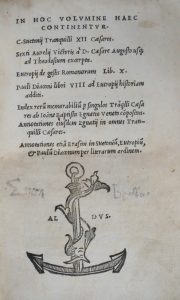 IN HOC VOLVMINE HAEC
CONTINENTVR.
C. Suetonij Tranquilli XII Cæsares.
Sexti Aurelij Victoris à D. Cæsare Augusto usq;
ad Theodosium excerpta.
Eutropij de gestis Romanorum Lib. X.
Pauli Diaconi libri VIII ad Eutropij historiam
additi.
Index rerũ memorabiliũ ī singulos Trãqlli Cæsa
res ab Ioãne Baptista Egnatio Veneto cõpositus.
Annotationes eiusdem Egnatij in omnes Tran⸗
quilli Cæsares.
Annotationes etiã Erasmi in Suetoniũ, Eutropiũ,
& Pauliũ Diaconum per literarum ordinem.
AL DVS